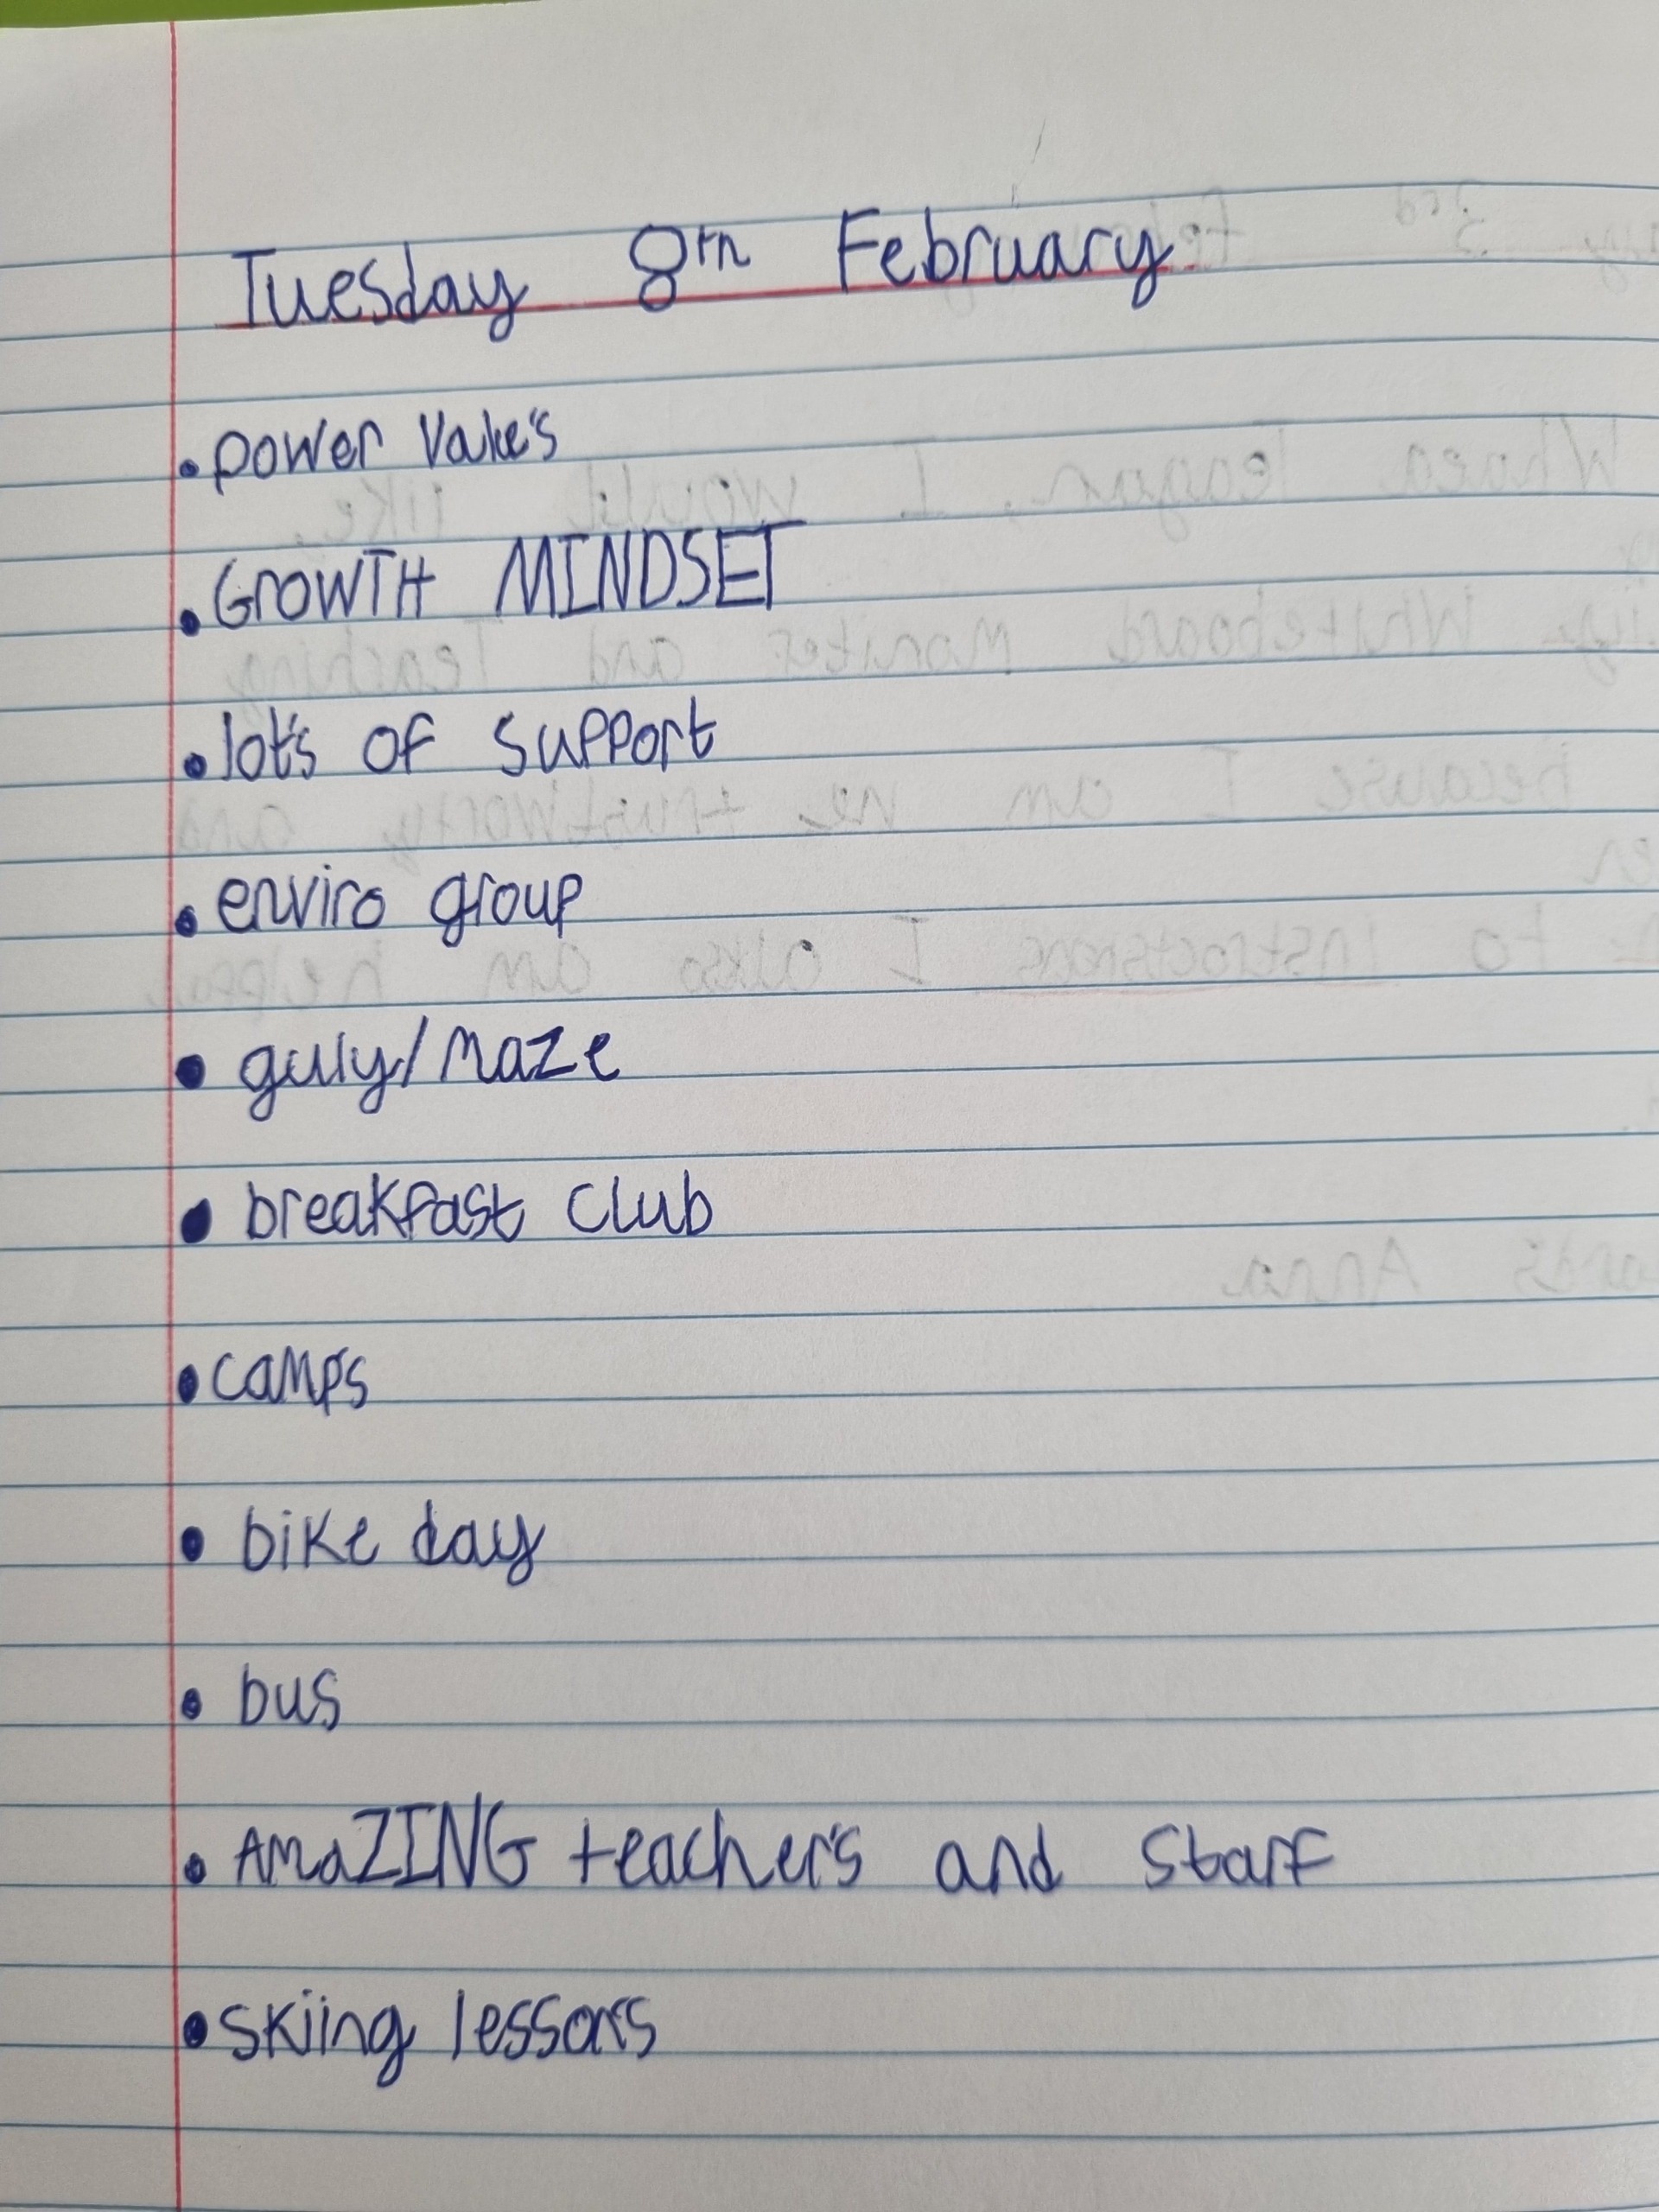 Tuesday 8th February
• power Value's
• GROWTH MINDSET
• lot's of support
• enviro group
• guly/maze
• breakfast club
• camp's
• bike day
• bus
• AMaZING teacher's and staff
• skiing lesson's